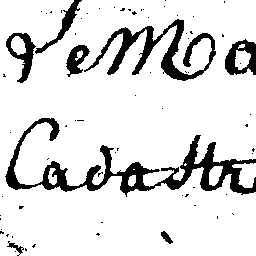 de Ma
Cadastr